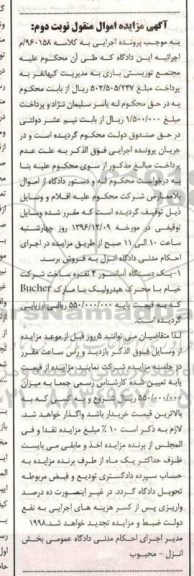 آگهی مزایده اموال منقول نوبت دوم:
به موجب پرونده اجرایی به کلاسه ۹۶۰۱۵۸/م
اجرائیه این دادگاه که طی آن محکوم علیه
مجتمع توریستی باری به مدیریت کیهانفر به
پرداخت مبلغ ۵۰۲/۵۰۵/۲۳۷ ریال از بابت محکوم
به در حق محکوم له یاسر سلیمان نژاد و پرداخت
مبلغ ۱/۵۰۰/۰۰۰ ریال از بابت نیم عشر دولتی
در حق صندوق دولت محکوم گردیده است و در
جریان پرونده اجرایی فوق الذکر به علت عدم
پرداخت مبالغ مذکور از سوی محکوم علیه بنا
به درخواست محکوم له و دستور دادگاه از اموال
بلامعارض شرکت محکوم علیه اقلام و وسایل
ذیل توقیف گردیده است که مقرر شده وسایل
توقیفی در مورخه ۱۳۹۶/۱۲/۰۹ روز چهارشنبه
ساعت ۱۰ الی ۱۱ صبح از طریق مزایده در اجرای
احکام مدنی دادگاه انزل به فروش برسد.
۱-یک دستگاه آسانسور ۴ نفره ساخت شرکت
خیام با محرک هیدرولیک با مارک Bucher
که به قیمت پایه ۵۵۰/۰۰۰/۰۰۰ ریالی ارزیابی
گردیده است.
لذا متقاضیان می توانند ۵ روز قبل از موعد مزایده
از وسایل فوق الذکر بازدید و راس ساعت مقرر
در جلسه مزایده شرکت نمایند. مزایده از قیمت
پایه تعیین شده کارشناس رسمی جمعا به میزان
۵۵۰/۰۰۰/۰۰۰ ریال شروع و به کسی که با
بالاترین قیمت خریدار باشد واگذار خواهد شد.
لازم به ذکر است ۱۰٪ مبلغ مزایده نقدا و فی
المجلس از برنده مزایده اخذ و مابقی می بایست
ظرف حداکثر یک ماه از طرف برنده مزایده به
حساب سپرده دادگستری تودیع و قبض مربوطه
تحویل دادگاه گردد. در غیر اینصورت ده درصد
واریزی پس از کسر هزینه های اجرایی به نفع
دولت ضبط و مزایده تجدید خواهد شد. ۱۹۹۸
مدیر اجرای احکام مدنی دادگاه عمومی بخش
انزل – محبوب